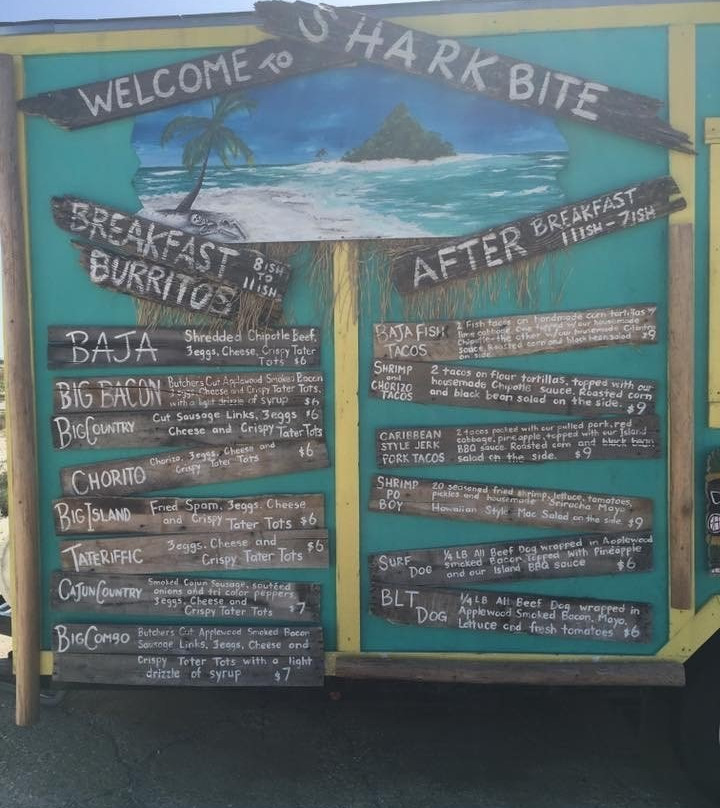 WELCOME TO SHARK BITE
BREAKFAST
BURRITOS
8ISH
TO
11ISH
BAJA
Shredded Chipotle Beef,
3eggs, Cheese, Crispy Tater
Tots $6
BIG BACON
Butchers Cut Applewood Smoked Bacon
3eggs, Cheese and Crispy Tater Tots,
with a light drizzle of syrup $6
BIGCOUNTRY
Cut Sausage Links, 3eggs $6
Cheese and Crispy Tater Tots
CHORITO
Chorizo, 3eggs, Cheese and
Crispy Tater Tots $6
BIGISLAND
Fried Spam, 3eggs, Cheese
and Crispy Tater Tots $6
TATERIFFIC
3eggs, Cheese and $6
Crispy Tater Tots
CAJUNCOUNTRY
Smoked Cajun Sausage, sautéed
onions and tri color peppers,
3eggs, Cheese and
Crispy Tater Tots $7
BIGCOMBO
Butchers Cut Applewood Smoked Bacon
Sausage Links, 3eggs, Cheese and
Crispy Tater Tots with a light
drizzle of syrup $7
AFTER BREAKFAST
11ISH-7ISH
BAJA FISH
TACOS
2 Fish tacos on handmade corn tortillas w/
lime cabbage. One topped w/our housemade
Chipotle the other w/our housemade Cilantro
sauce. Roasted corn and black bean salad $9
on side
SHRIMP
and
CHORIZO
TACOS
2 tacos on flour tortillas, topped with our
housemade Chipotle sauce. Roasted corn
and black bean salad on the side. $9
CARIBBEAN
STYLE JERK
PORK TACOS
2 tacos packed with our pulled pork, red
cabbage, pineapple, topped with our Island
BBQ sauce. Roasted corn and black bean
salad on the side. $9
SHRIMP
PO
BOY
20 seasoned fried shrimp, lettuce, tomatoes,
pickles and housemade Sriracha Mayo
Hawaiian Style Mac Salad on the side $9
SURF
DOG
1/4 LB All Beef Dog wrapped in Applewood
smoked Bacon topped with Pineapple
and our Island BBQ sauce $6
BLT
DOG
1/4 LB All Beef Dog wrapped in
Applewood Smoked Bacon, Mayo,
Lettuce and fresh tomatoes $6